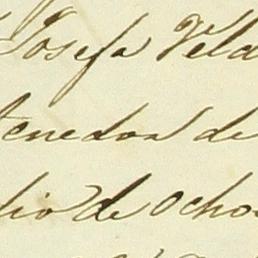 Josefa Vela
tenedor de
dio de Ocho